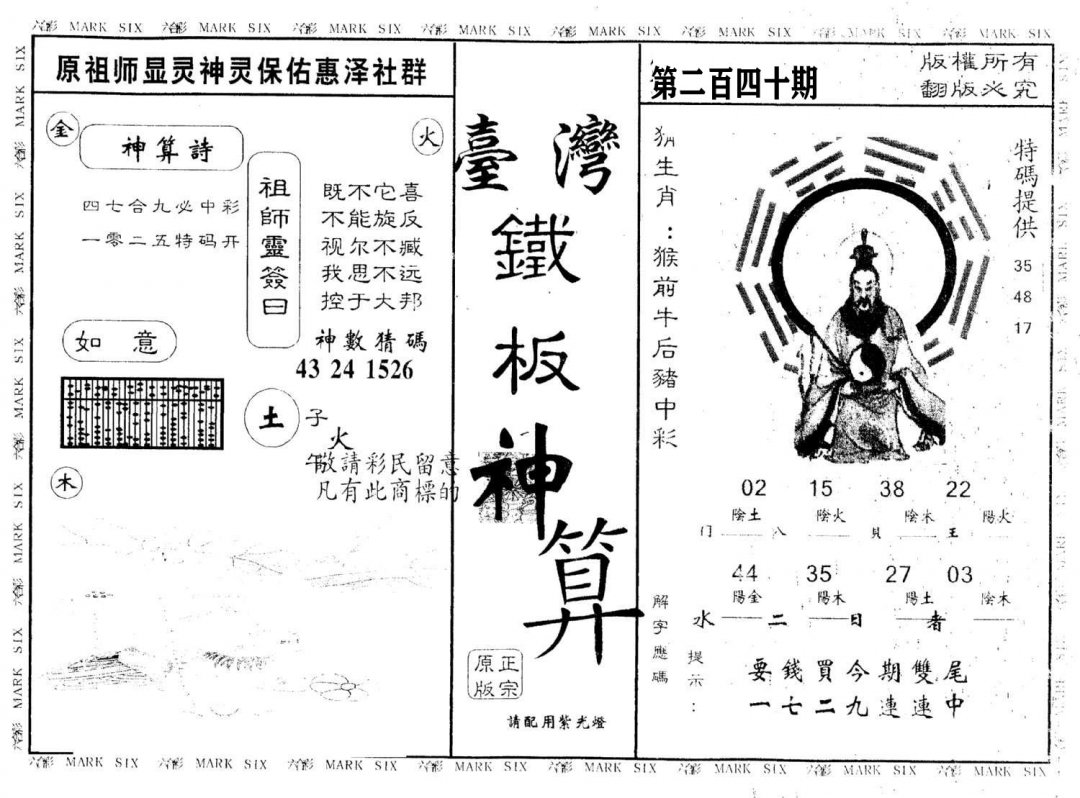 六合彩 MARK SIX 六合彩 MARK SIX 六合彩 MARK SIX 六合彩 MARK SIX 六合彩 MARK SIX 六合彩 MARK SIX 六合彩 MARK SIX 六合彩 MARK SIX
原祖师显灵神灵保佑惠泽社群
金
神算詩
火
四七合九必中彩
一零二五特码开
祖師靈簽曰
既不它喜
不能旋反
视尔不臧
我思不远
控于大邦
神數猜碼
43 24 1526
如 意
土
子
火
午敬請彩民留意
凡有此商標的
木
臺灣
鐵
板
神
算
正宗
原版
請配用紫光燈
第二百四十期
版權所有
翻版必究
猜生肖:猴前牛后豬中彩
特碼提供
35
48
17
02 15 38 22
陰土 陰火 陰木 陽火
门 八 貝 王
44 35 27 03
陽金 陽木 陽土 陰木
水 二 日 者
解字應碼
提示:
要錢買今期雙尾
一七二九連連中
六合彩 MARK SIX 六合彩 MARK SIX 六合彩 MARK SIX 六合彩 MARK SIX 六合彩 MARK SIX 六合彩 MARK SIX 六合彩 MARK SIX 六合彩 MARK SIX